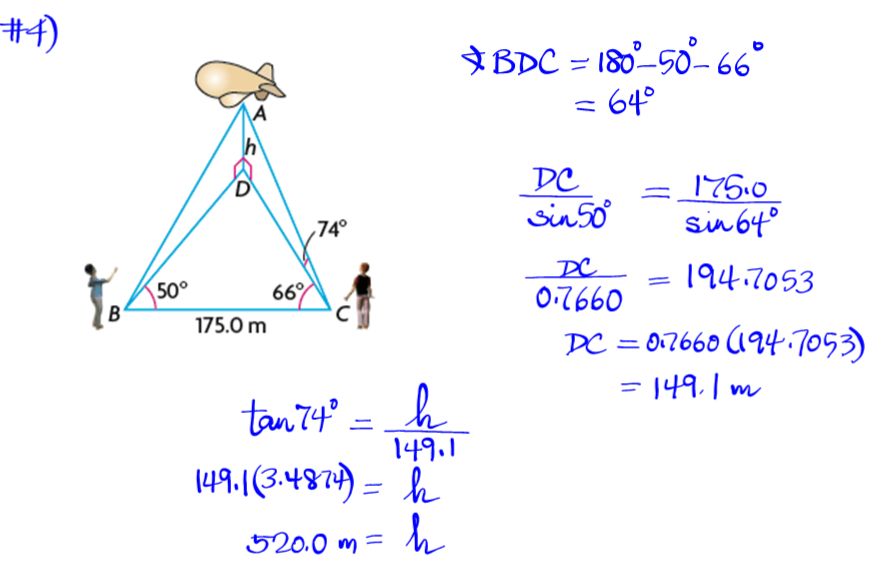 #4)
A
h
D
74°
50°
66°
B
C
175.0 m
∡BDC = 180° - 50° - 66°
= 64°
DC/sin50° = 175.0/sin64°
DC/0.7660 = 194.7053
DC = 0.7660(194.7053)
= 149.1 m
tan74° = h/149.1
149.1(3.4874) = h
520.0 m = h